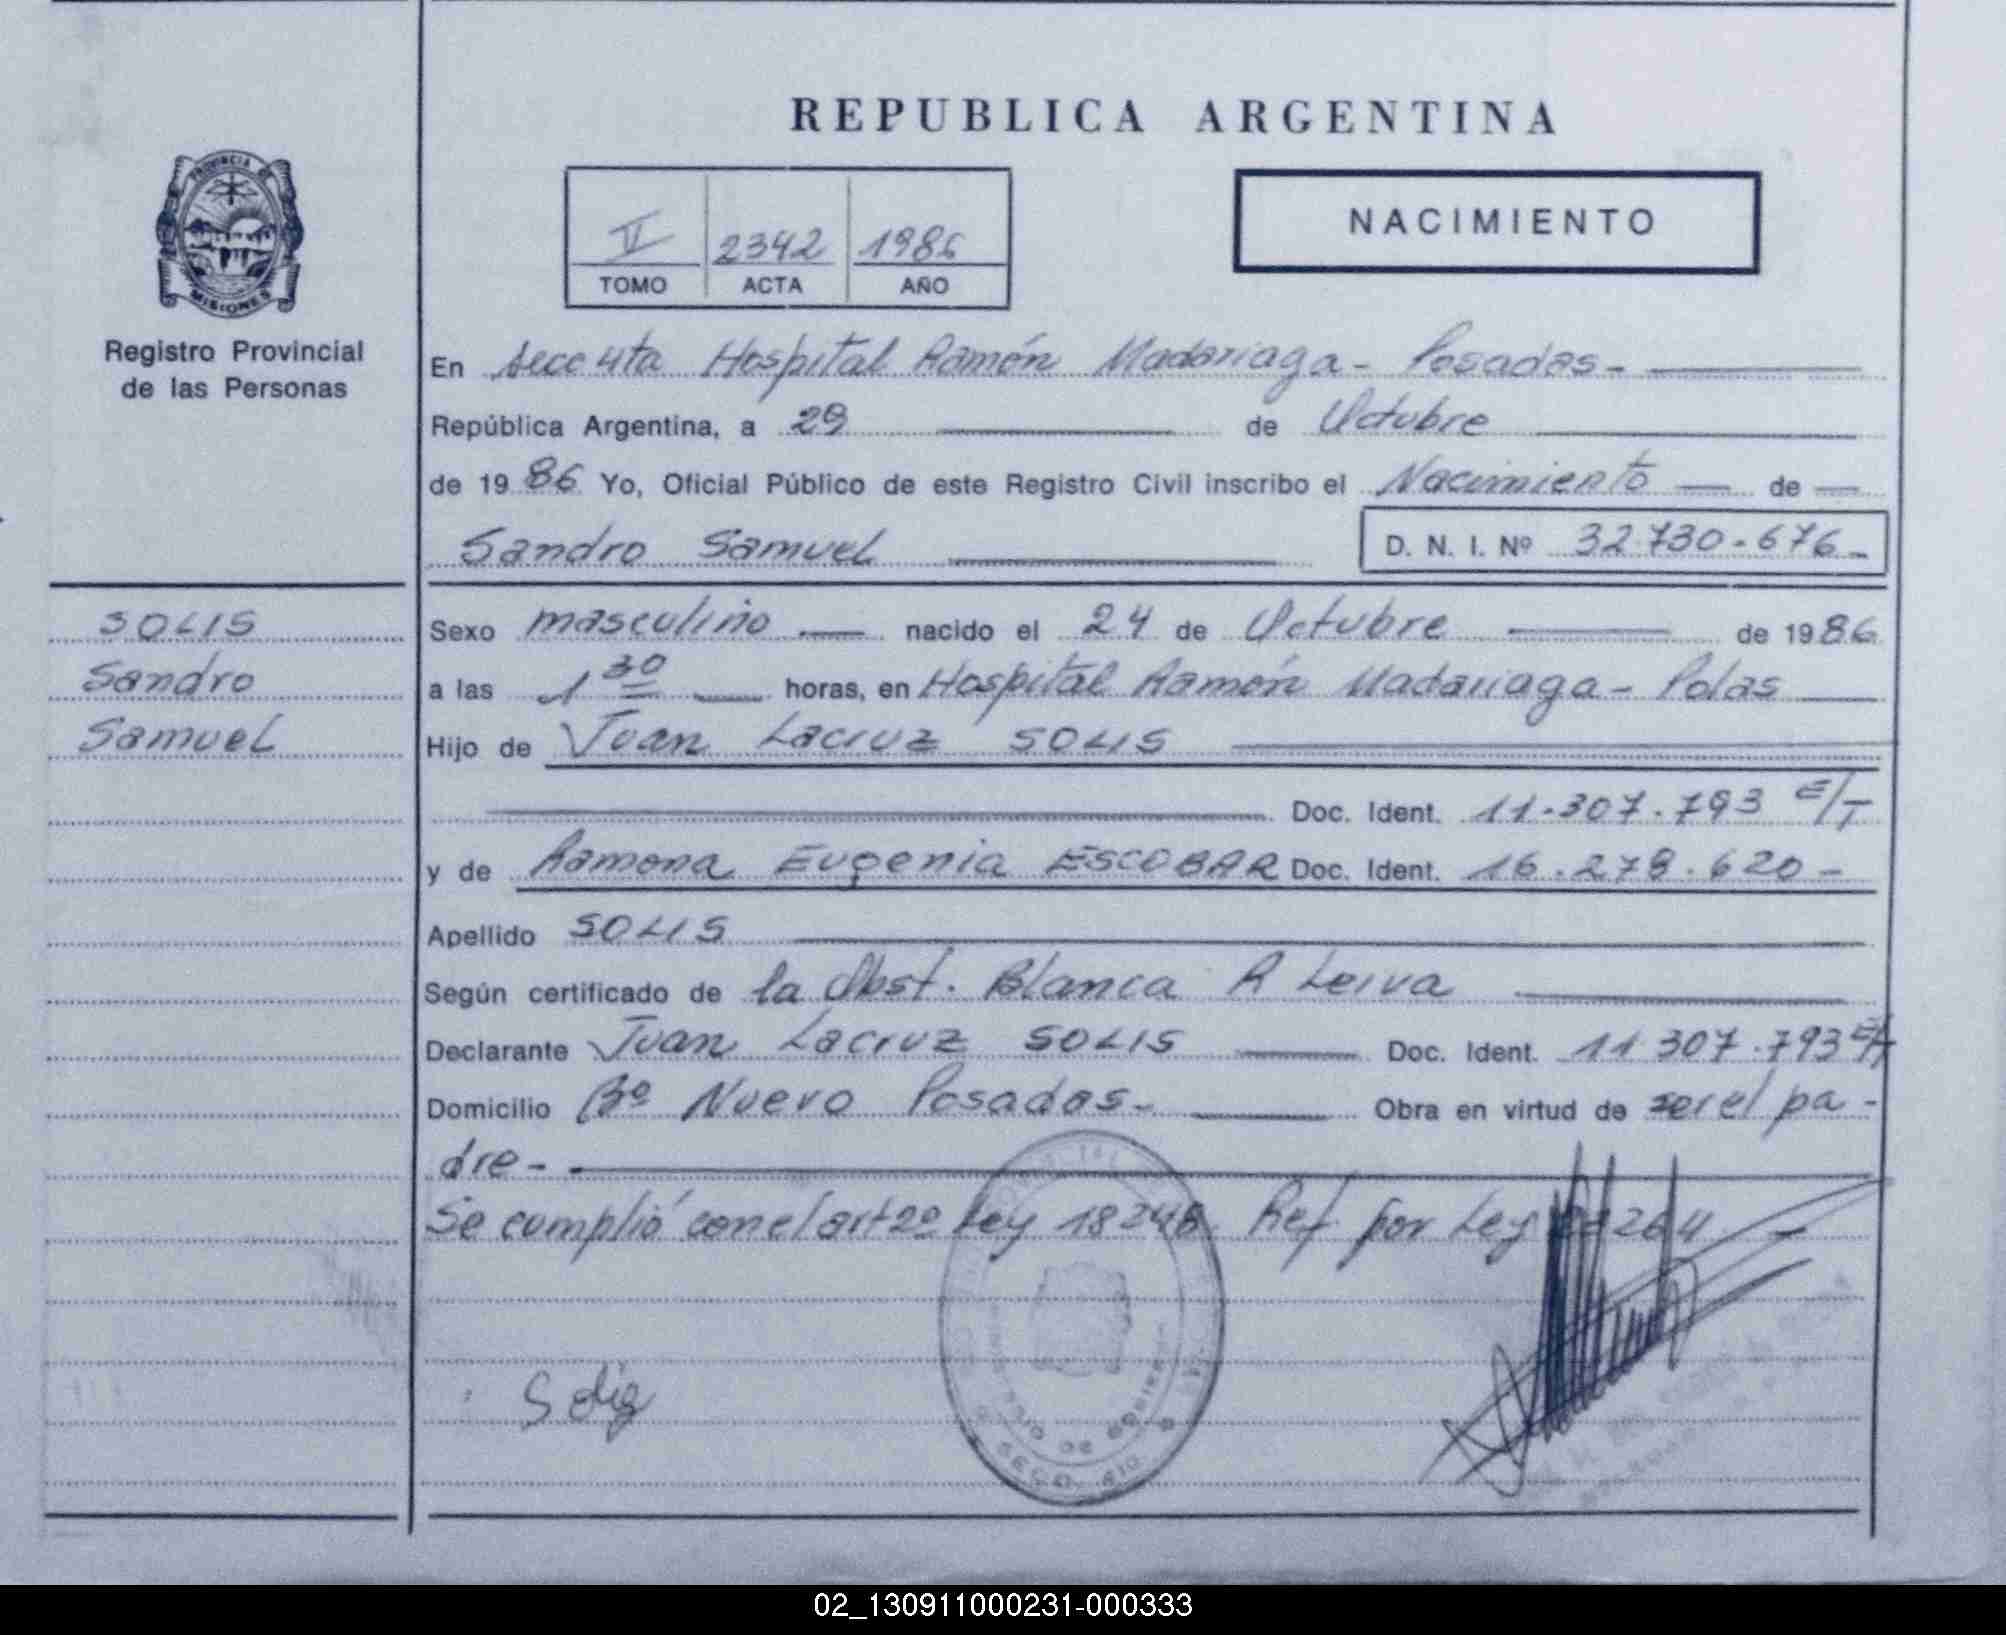 REPUBLICA ARGENTINA
PROVINCIA DE
MISIONES
Registro Provincial
de las Personas
2342 1986
TOMO ACTA AÑO
NACIMIENTO
En Secc 4ta Hospital Ramón Madariaga - Posadas -
República Argentina, a 29 de Octubre
de 1986 Yo, Oficial Público de este Registro Civil inscribo el Nacimiento de
Sandro Samuel D. N. I. Nº 32 730-676-
SOLIS
Sandro
Samuel
Sexo masculino nacido el 24 de Octubre de 1986
a las 1 30 horas, en Hospital Ramón Madariaga - Pdas
Hijo de Juan Lacruz SOLIS
Doc. Ident. 11-307.793 E/T
y de Ramona Eugenia ESCOBAR Doc. Ident. 16.278.620-
Apellido SOLIS
Según certificado de la Obst. Blanca R Leiva
Declarante Juan Lacruz SOLIS Doc. Ident. 11 307.793 E/T
Domicilio Bº Nuevo Posadas- Obra en virtud de ser el pa-
dre-
Se cumplió con el art 2º Ley 18248 Ref por Ley
Solis
02_130911000231-000333